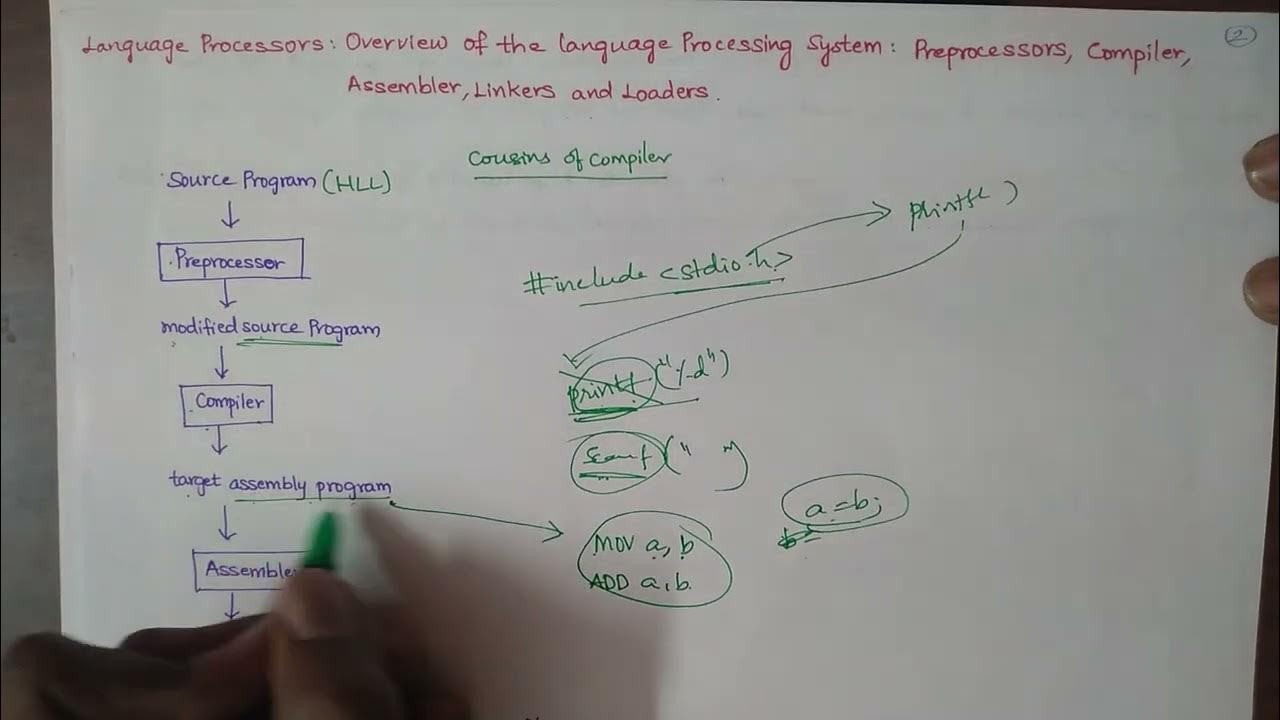 Language Processors: Overview of the Language Processing System: Preprocessors, Compiler,
Assembler, Linkers and Loaders.
2
Cousins of Compiler
Source Program (HLL)
Preprocessor
modified source Program
Compiler
target assembly program
Assemble
#include <stdio.h>
printf( )
printf ("%d")
Scanf (" ")
MOV a, b
ADD a, b.
a = b;